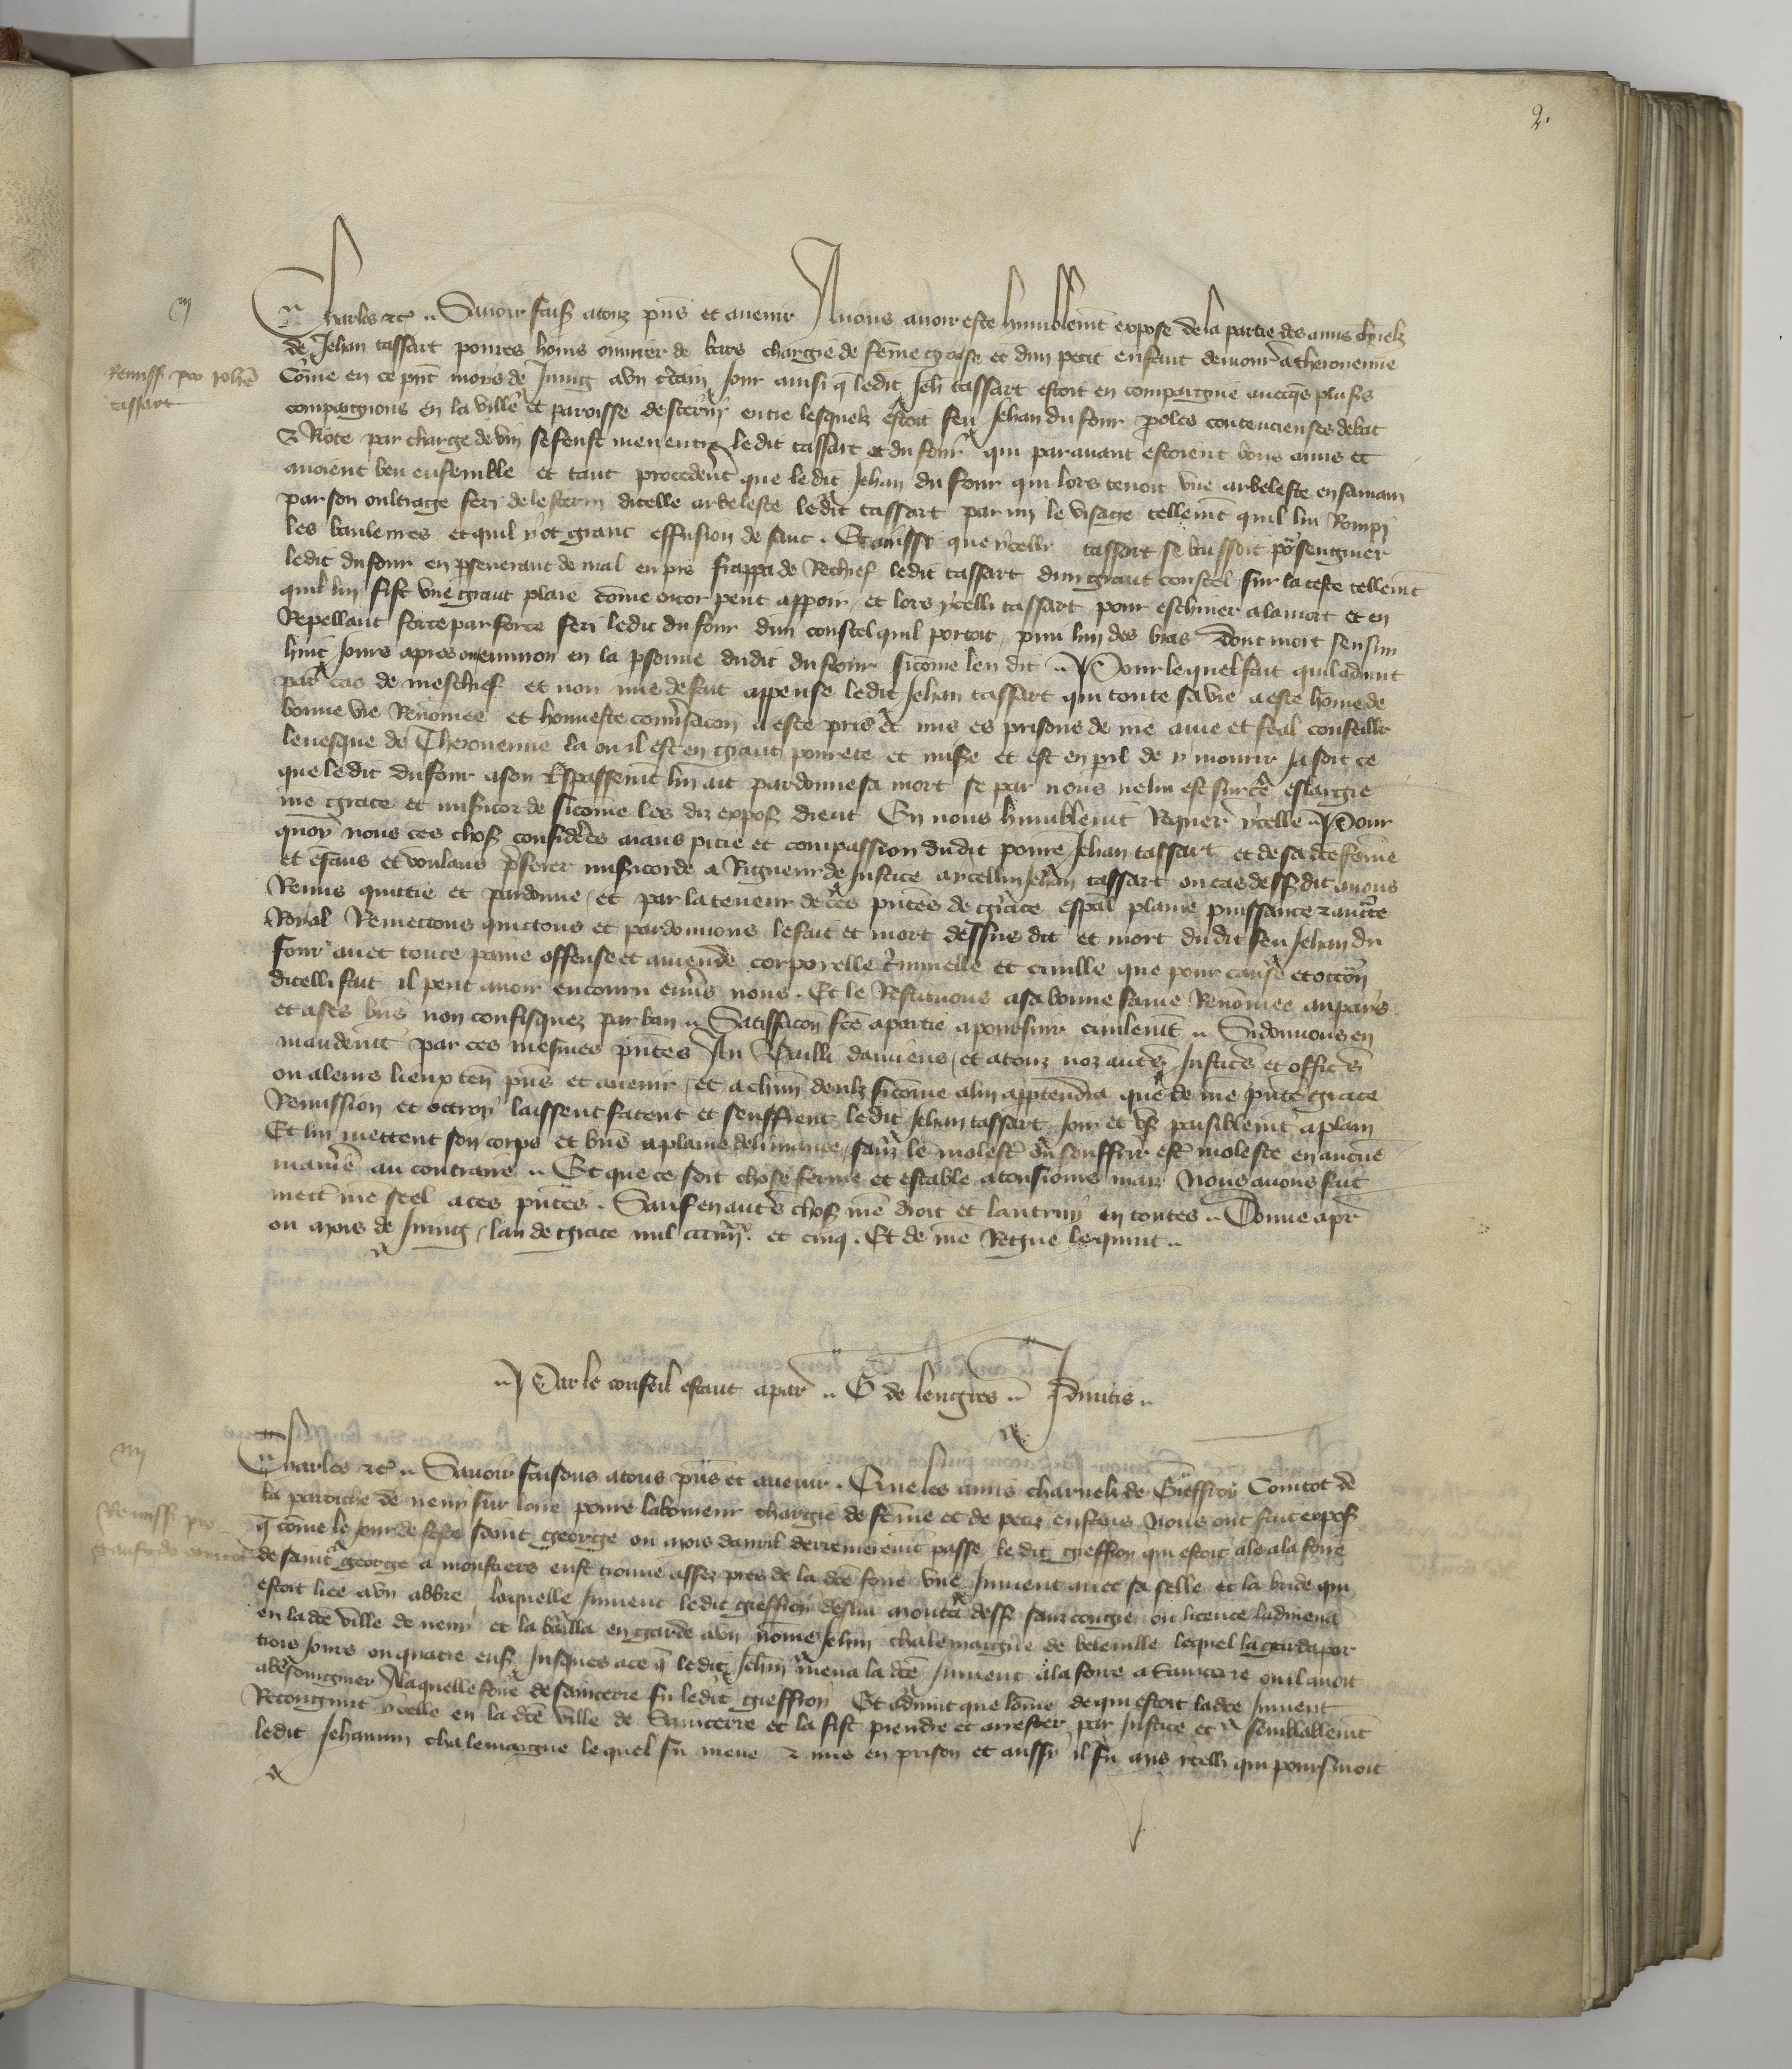 2.
iij
Charles etc. Savoir faiß a touz pñs et avenir A nous avoir este humblemt expose de la partie des amis charnelz
de Jehan tassart povres homs ouvrier de bras chargie de feme grosse et dun petit enfant demour a therouenne
Remiss. pro Johe tassart
Come en ce pnt mois de Juing a un ctain jour ainsi q ledit Jeh tassart estoit en compaignie avecqs plusrs
compaignons en la ville et paroisse desterny entre lesquelz estoit feu Jehan du four poles contencieuses debat
& Riote par charge de vin se fust meu entre ledit tassart et du four qui paravant estoient bons amis et
avoient beu ensemble et tant procederent que ledit Jehan du four qui lors tenoit une arbeleste en sa main
par son oultrage feri de lestrein dicelle arbeleste ledit tassart parmi le visage tellemt quil lui Rompi
les baulevres et quil y ot grant effusion de sanc. Et ainssi que ycelli tassart se baissoit po sengnier
ledit du four en pseverant de mal en pis frappa de Rechief ledit tassart dun grant coustel sur la teste tellemt
quil lui fist une grant plaie come encor peut apparoir, et lors ycelli tassart pour eschiver a la mort et en
Repellant force par force feri ledit du four dun coustel quil portoit pmi lun des bras dont mort sensui
huit jours apres ou environ en la psonne dudit du four sicome len dit .. Pour lequel fait quil advint
par cas de meschief et non mie de fait appense ledit Jehan tassart qui toute sa vie a este home de
bonne vie Renomee et honneste convsacon a este pris et mis es prisons de nre ame et feal conseillr
levesque de Therouenne la ou il est en grant povrete et mise et est en pil de y mourir Ja soit ce
que ledit du four a son trespassemt lui ait pardonne sa mort se par nous ne lui est sur ce eslargie
nre grace et misicorde sicome les diz exposs dient En nous humblemt Requer ycelle .. Pour
quoy nous ces choß considerees aians pitie et compassion dudit povre Jehan tassart et de sa dce feme
et enfans et voulans pferer misicorde a Rigueur de Justice a ycellui Jehan tassart ou cas dessß dit avons
Remis quittie et pardonne, et par la teneur de ces pntes de grace espal plaine puissance & auctte
Royal Remettons quittons et pardonnons le fait et mort dessus dit et mort dudit feu Jehan du
four avec toute paine offense et amende corporelle criminelle et civille que pour cause et occon
dicelli fait il peut avoir encouru envs nous. Et le Restituons a sa bonne fame Renommee au pais
et a ses biens non confisquez par ban .. Satisfacon fce a partie a poursuir civilemt .. Si donnons en
mandemt par ces mesmes pntes Au Bailli damiens, et a touz noz autrs Justicrs et officrs
ou a leurs lieux ten pns et avenir, et a chun deulz sicome a lui apptendra que de nre pnte grace
Remission et ottroy laissent facent et seuffrent ledit Jehan tassart joir et uß paisiblemt a plain
Et lui mettent son corps et biens a plaine delivrance, sanz le molester ou souffrir estre moleste en aucune
maniere au contraire .. Et que ce soit chose ferme et estable a tousiours mais Nous avons fait
mettre nre seel a ces pntes. Sauf en autrs choß nre droit et lautruy en toutes .. Donne a par
ou mois de Juing, lan de grace mil ccciiijxx. et cinq. Et de nre Regne le quint ..
.. Par le conseil estant a par .. G de lengres .. Jdmitis ..
iiij
Charles etc. .. Savoir faisons a tous pns et avenir. Que les amis charnelz de Gieffroy Comtot de
la paroiche de neuvy sur loire povre laboureur chargie de feme et de petiz enfans Nous ont fait exposß
Remiss. pro Gaufrido comtot
q come le jour de feste saint george ou mois davril derrenieremt passe ledit gieffroy qui estoit ale a la foire
de saint george a monstiers eust trouve assez pres de la dce foire une jument avec sa selle et la bride qui
estoit liee a un abbre laquelle jument ledit gieffroy deslia monta dessß sanz congie ou licence ladmena
en la dce ville de neuvy et la bailla en garde a un nomme Jehan chalemaigne de beleville lequel la garda par
trois jours ou quatre enß jusques a ce q ledit Jehan mena la dce jument a la foire a Sancerre ou il avoit
a besoingnier A laquelle foire de sancerre fu ledit gieffroy Et advint que lome de qui estoit ladce jument
Recongnut ycelle en la dce ville de Sancerre et la fist prendre et arrester par justice et semblablemt
ledit Jehannin chalemaigne lequel fu mene & mis en prison et aussy il fu avis ycelli qui poursuivoit